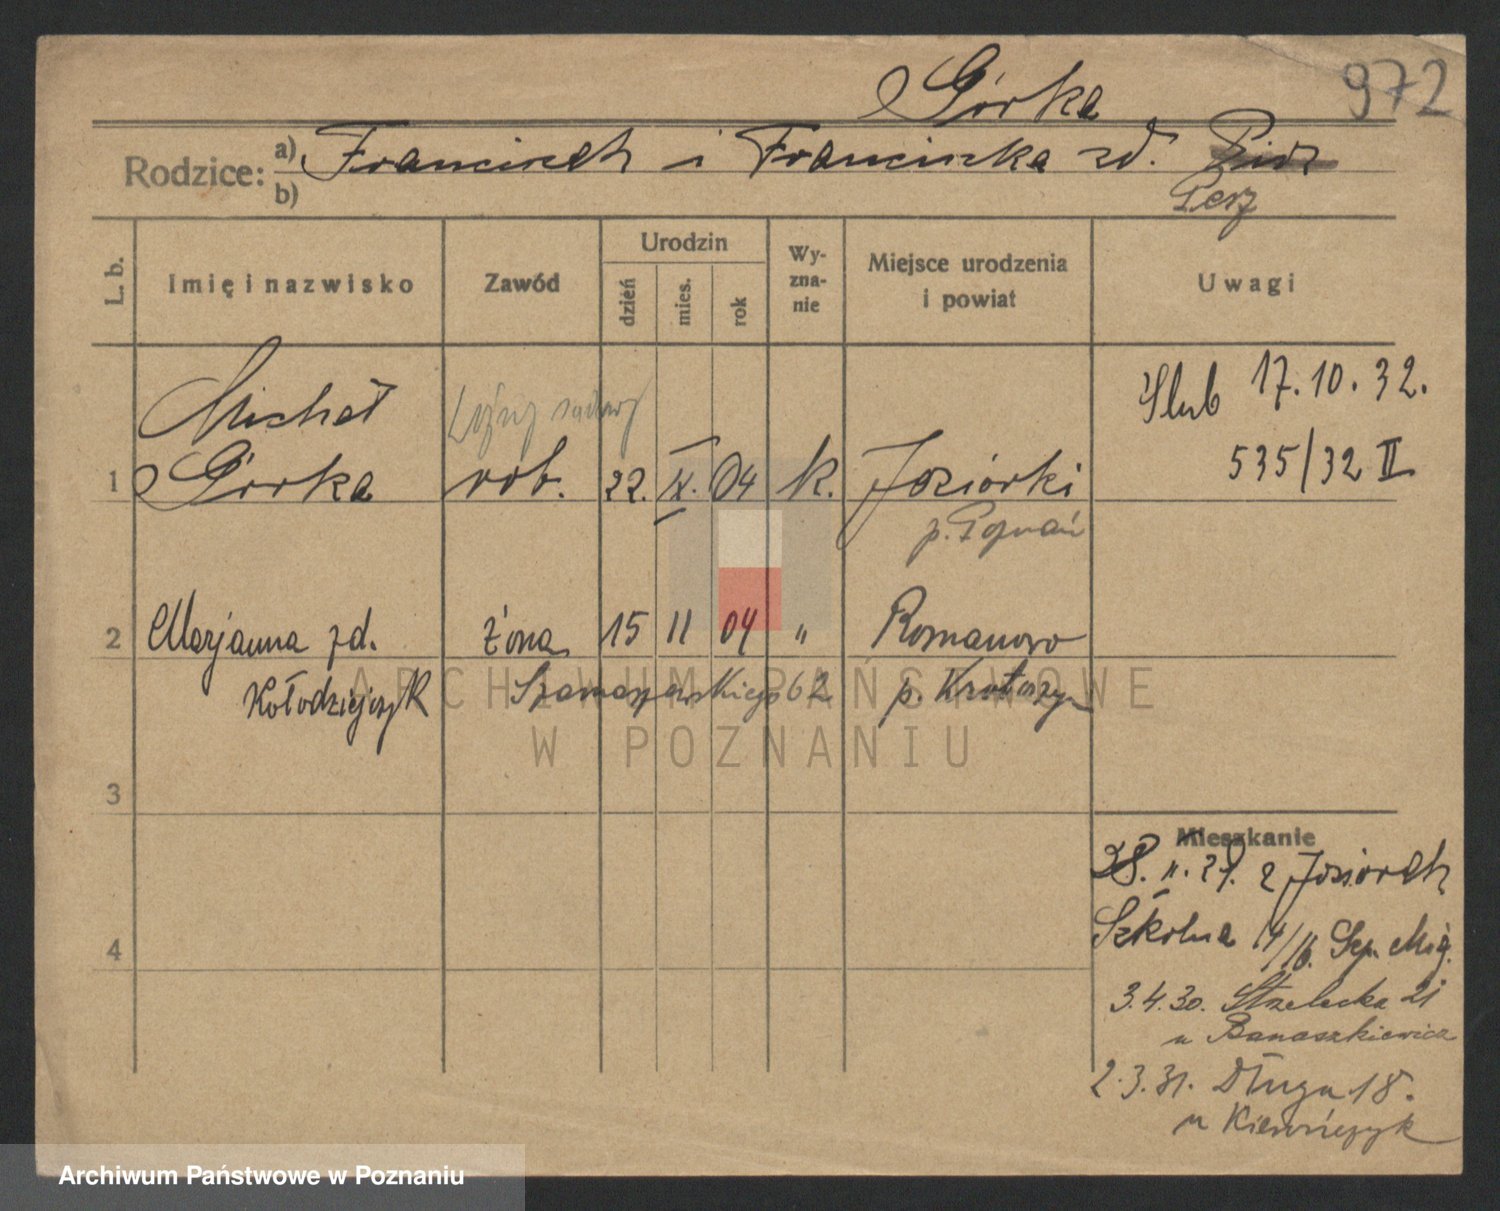 Górka
972
Rodzice: a) Franciszek i Franciszka zd.
b) Perz
L. b.
Imię i nazwisko
Zawód
Urodzin
dzień
mies.
rok
Wy-
zna-
nie
Miejsce urodzenia
i powiat
Uwagi
Michał
1 Górka rob. 22. IX. 04 k. Joziórki
p. Poznań
Ślub 17.10.32.
535/32 II
2 Marjanna zd. żona 15 II 04 " Romanowo
Kołodziejczyk Szamarzewskiego 62 p. Krotoszyn
3
4
Mieszkanie
28. II. 29. z Joziorek
Szkolna 14/16. Szp. Miej.
3.4.30. Strzelecka 21
u Banaszkiewicz
2.3.31. Długa 18.
u
ARCHIWUM PAŃSTWOWE
W POZNANIU
Archiwum Państwowe w Poznaniu